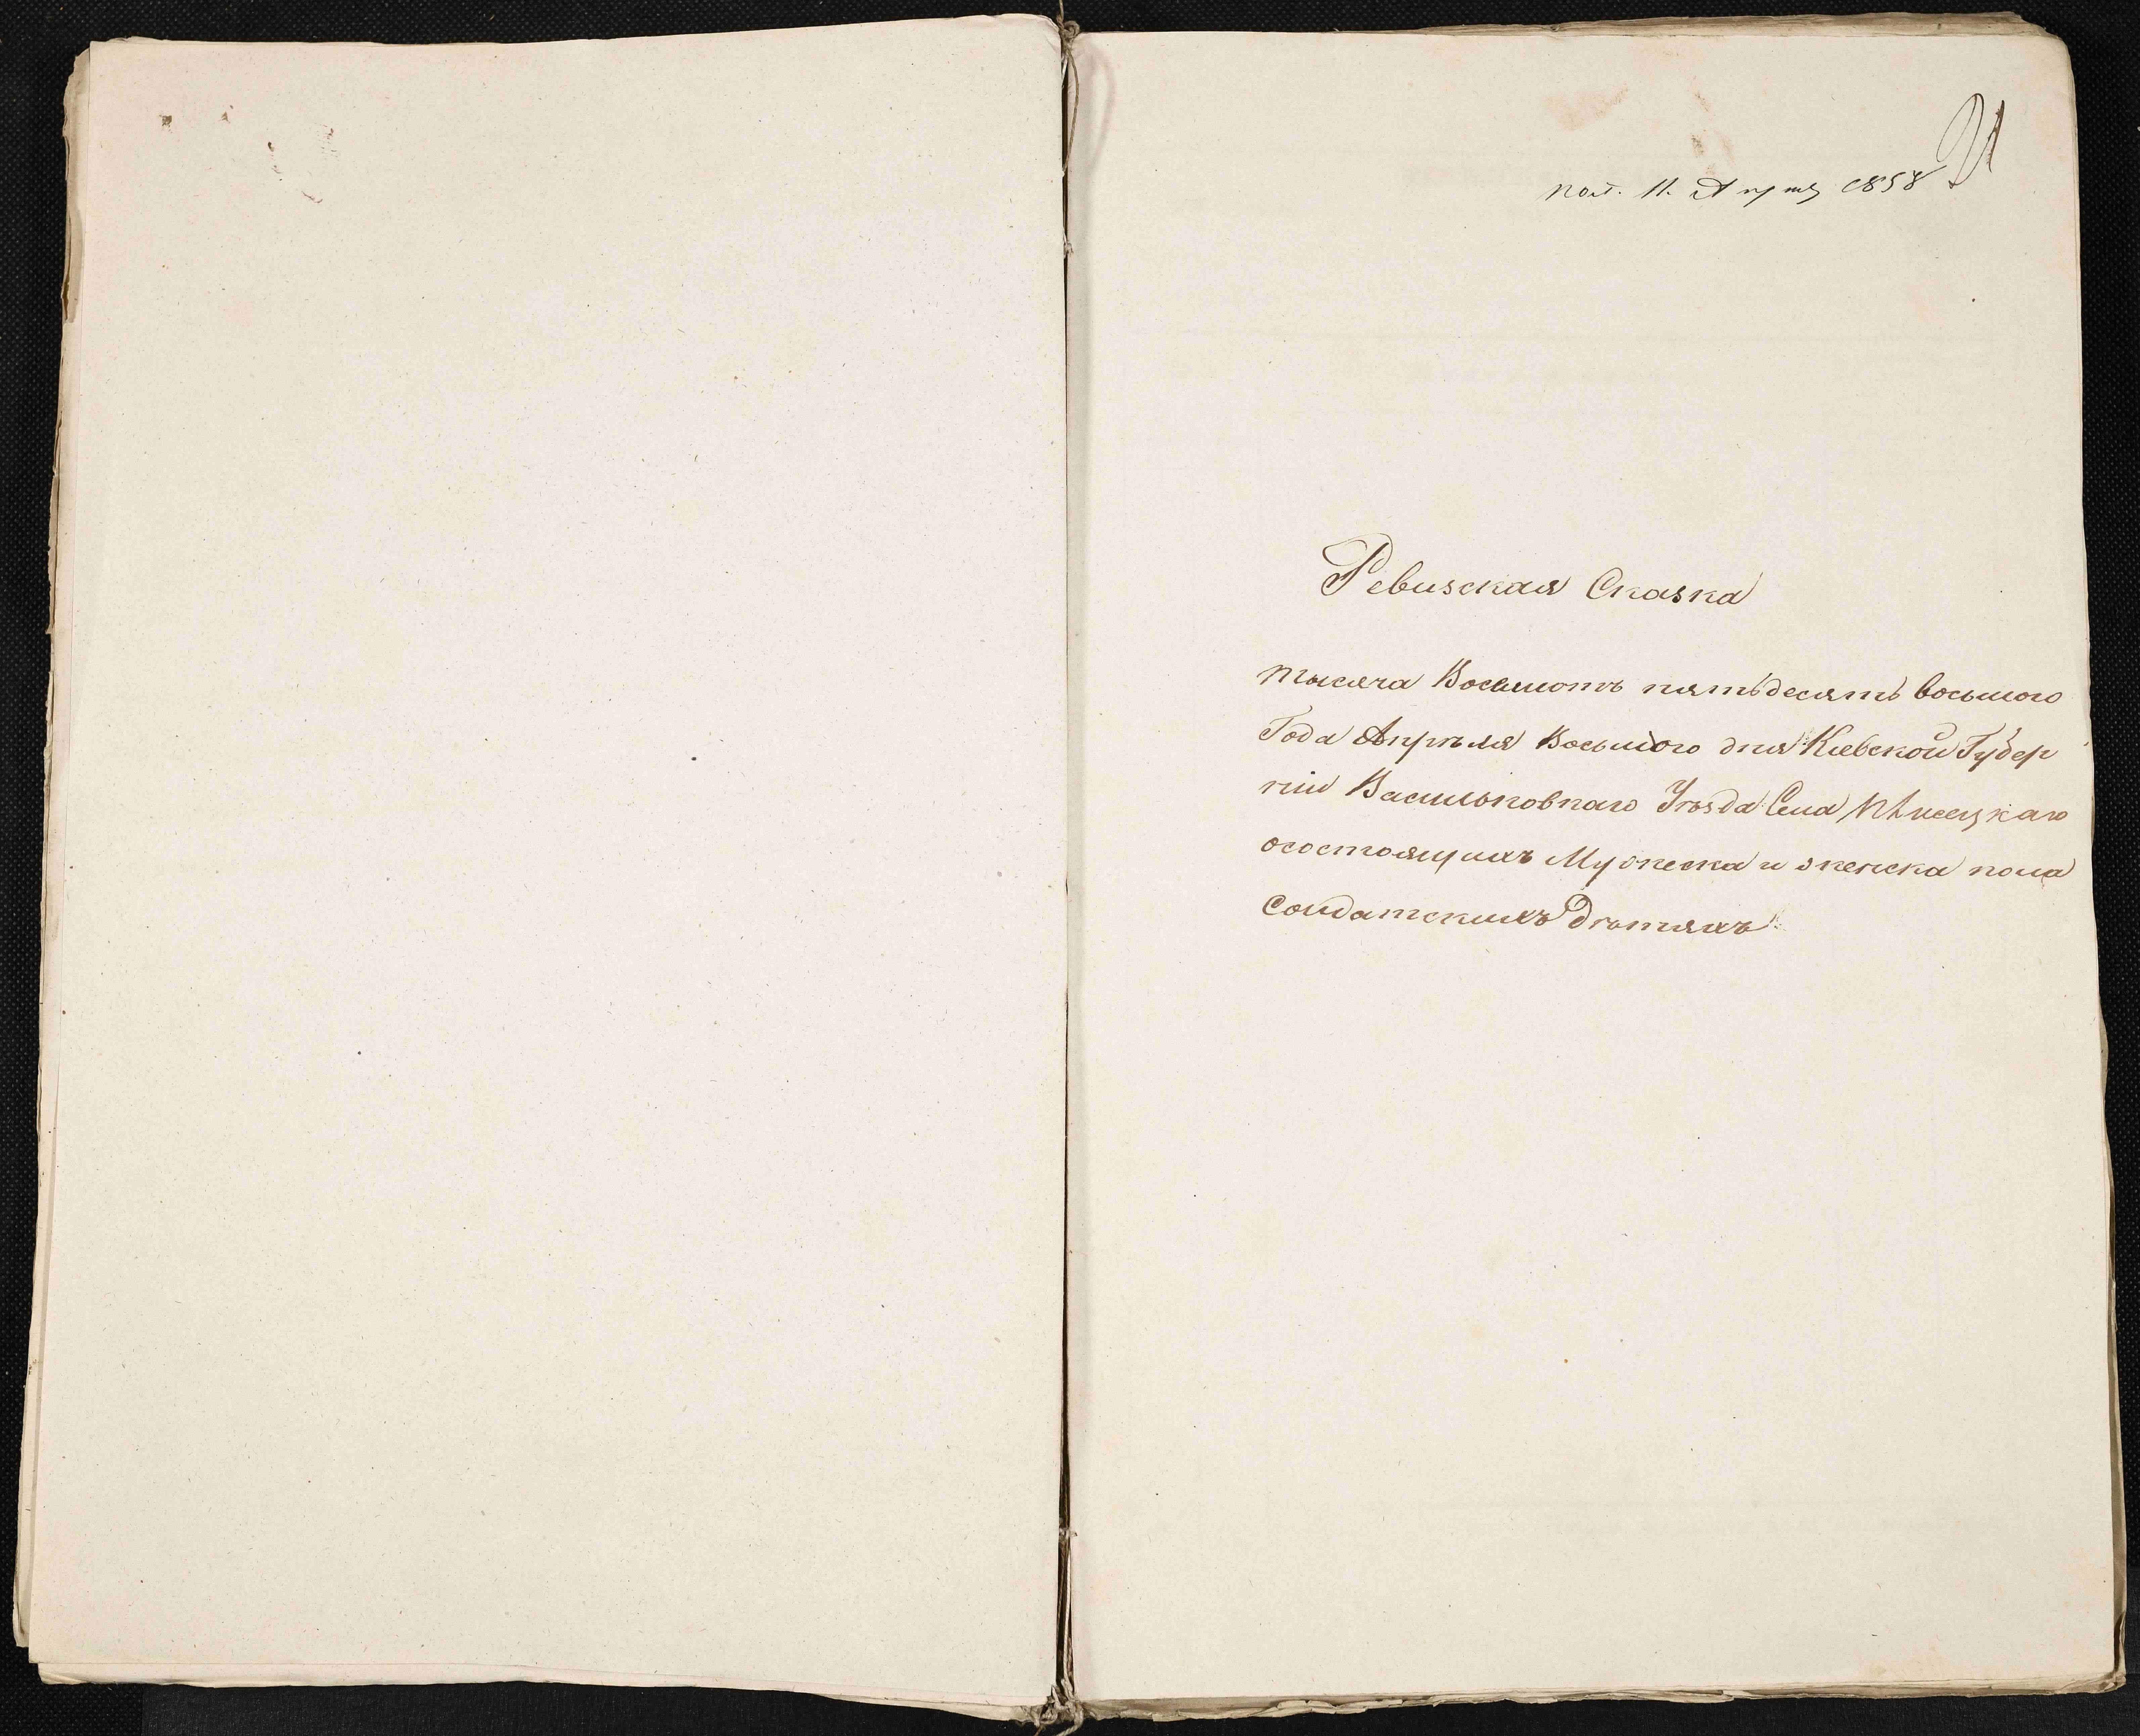 пол. 11. Апреля 1858
Ревизская Сказка
тысяча Восемсотъ пятьдесятъ восьмого
Года Апрѣля Восьмого дня Кіевской Губер
ніи Васильковнаго Уѣзда Села
осостоящихъ Мужеска и женска пола
Солдатскихъ Дѣтяхъ